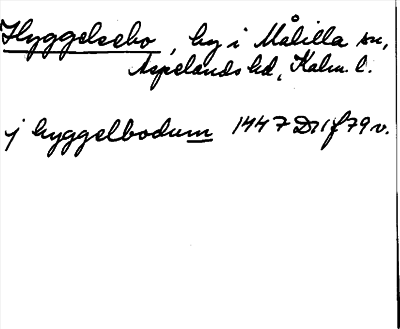 Hyggelsebo, by i Målilla sn,
Aspelands hd, Kalm. l.
j hyggelbodum 1447 D21 f 79 v.